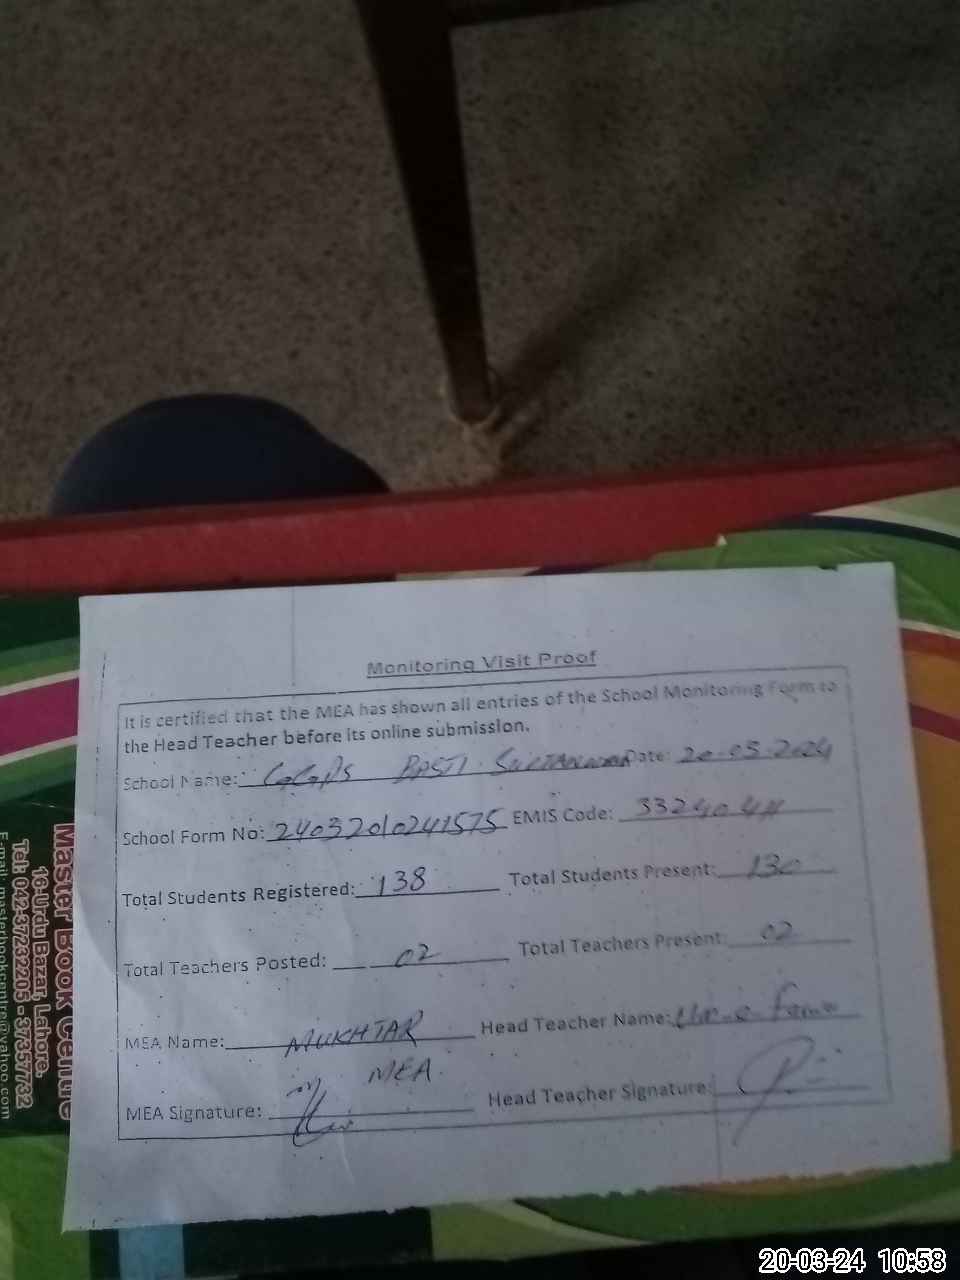 Monitoring Visit Proof
It is certified that the MEA has shown all entries of the School Monitoring Form to
the Head Teacher before its online submission.
School Name: GGPS BASTI Date: 20-03-2024
School Form No: 24032010241575 EMIS Code:
Total Students Registered: 138 Total Students Present: 130
Total Teachers Posted: 02 Total Teachers Present: 02
MEA Name: MUKHTAR Head Teacher Name:
MEA
MEA Signature: Head Teacher Signature:
Master Book Centre
16-Urdu Bazar, Lahore.
Tel: 042-37232205 - 37257732
E-mail: masterbookcentre@yahoo.com
20-03-24 10:58